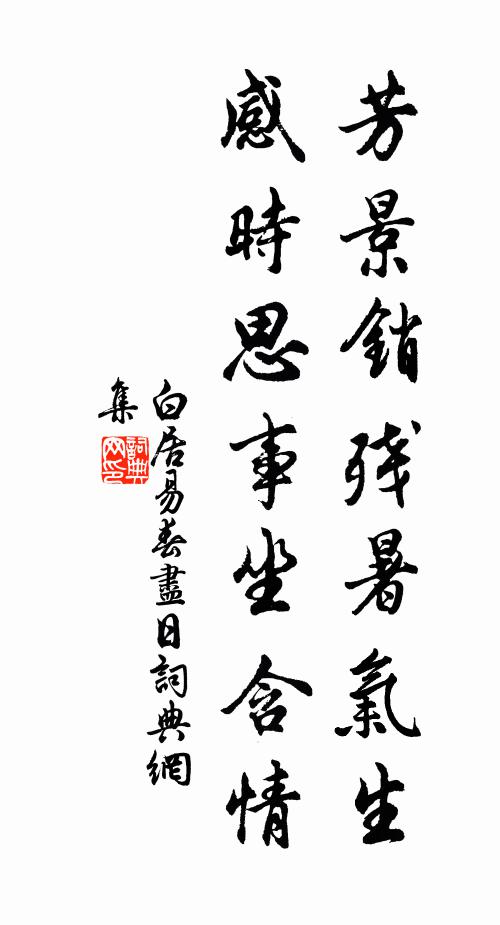 芳景銷殘暑氣生
感時思事坐含情
白居易春盡日詞典網
集
詞典網印